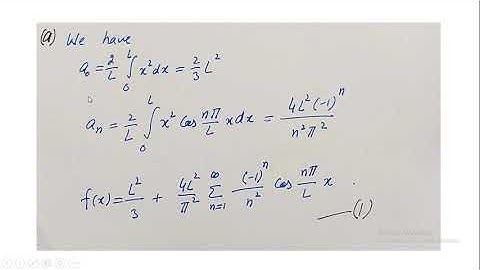 (a) We have
a₀ = 2/L ∫₀ᴸ x² dx = 2/3 L²
aₙ = 2/L ∫₀ᴸ x² cos nπ/L x dx = 4L² (-1)ⁿ / n² π²
f(x) = L²/3 + 4L²/π² ∑ₙ₌₁^∞ (-1)ⁿ/n² cos nπ/L x .
—— (1)